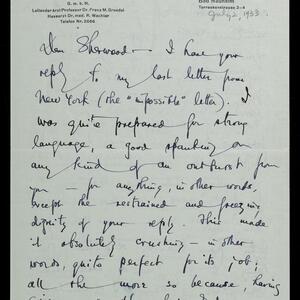 G. m. b. H.
Leitender Arzt Professor Dr. Franz M. Groedel
Hausarzt Dr. med. R. Wachter
Telefon Nr. 2066
Bad Nauheim
Terrassenstrasse 2-4
July 2, 1933
Dear Sherwood — I have your
reply to my last letter from
New York (the "impossible" letter). I
was quite prepared for strong
language, a good spanking or
any kind of an outburst from
you — for anything, in other words,
except the restrained and freezing
dignity of your reply. This made
it absolutely crushing — in other
words, quite perfect for its job;
all the more so because, having